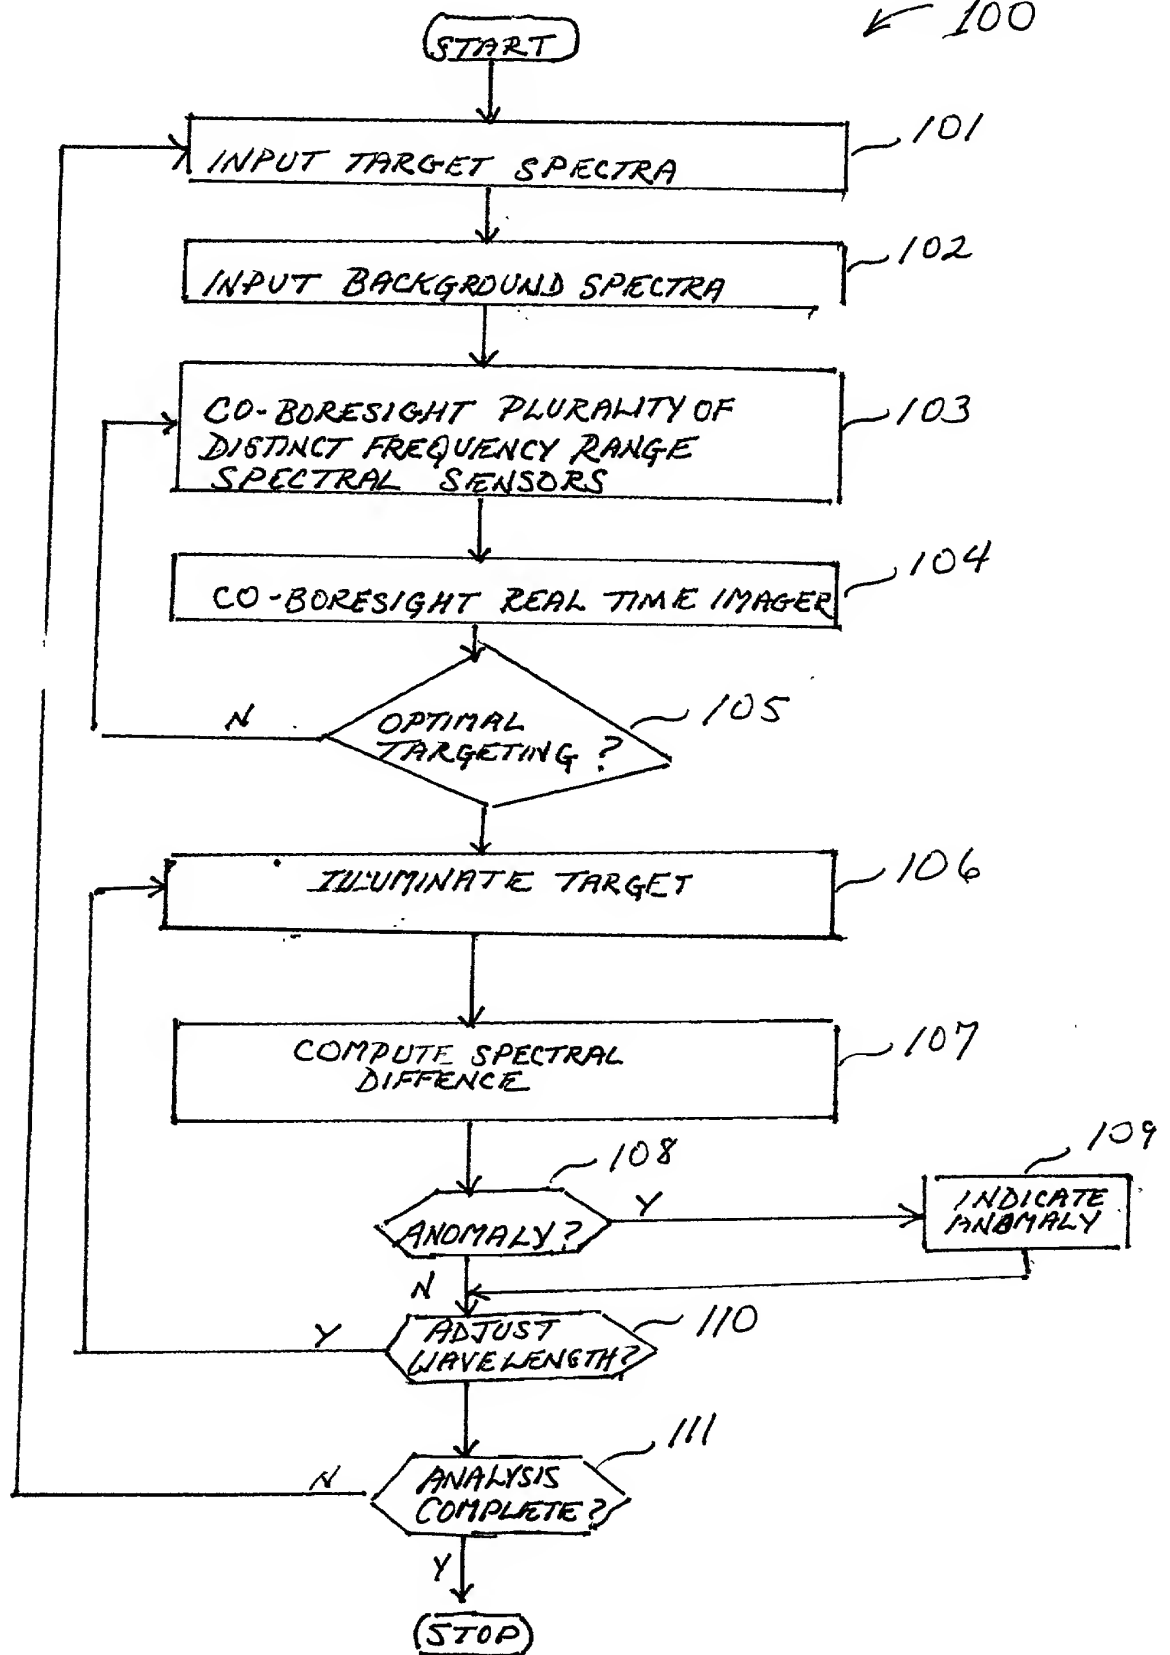 100
START
101
INPUT TARGET SPECTRA
102
INPUT BACKGROUND SPECTRA
103
CO-BORESIGHT PLURALITY OF
DISTINCT FREQUENCY RANGE
SPECTRAL SENSORS
104
CO-BORESIGHT REAL TIME IMAGER
105
OPTIMAL
TARGETING?
N
106
ILLUMINATE TARGET
107
COMPUTE SPECTRAL
DIFFENCE
108
ANOMALY?
Y
109
INDICATE
ANOMALY
N
110
ADJUST
WAVELENGTH?
Y
111
ANALYSIS
COMPLETE?
N
Y
STOP